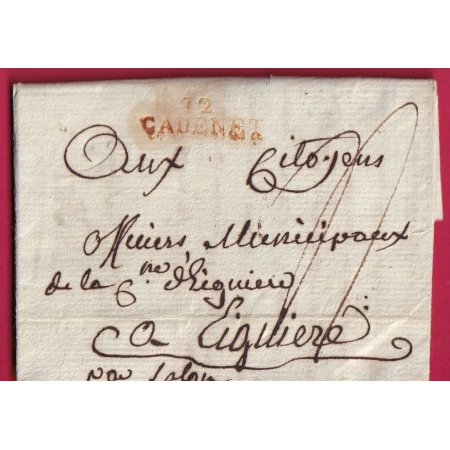 72
CADENET
Aux Citoyens
Officiers Municipaux
de la Cne d'Eiguiere
a Eiguiere
par Salon